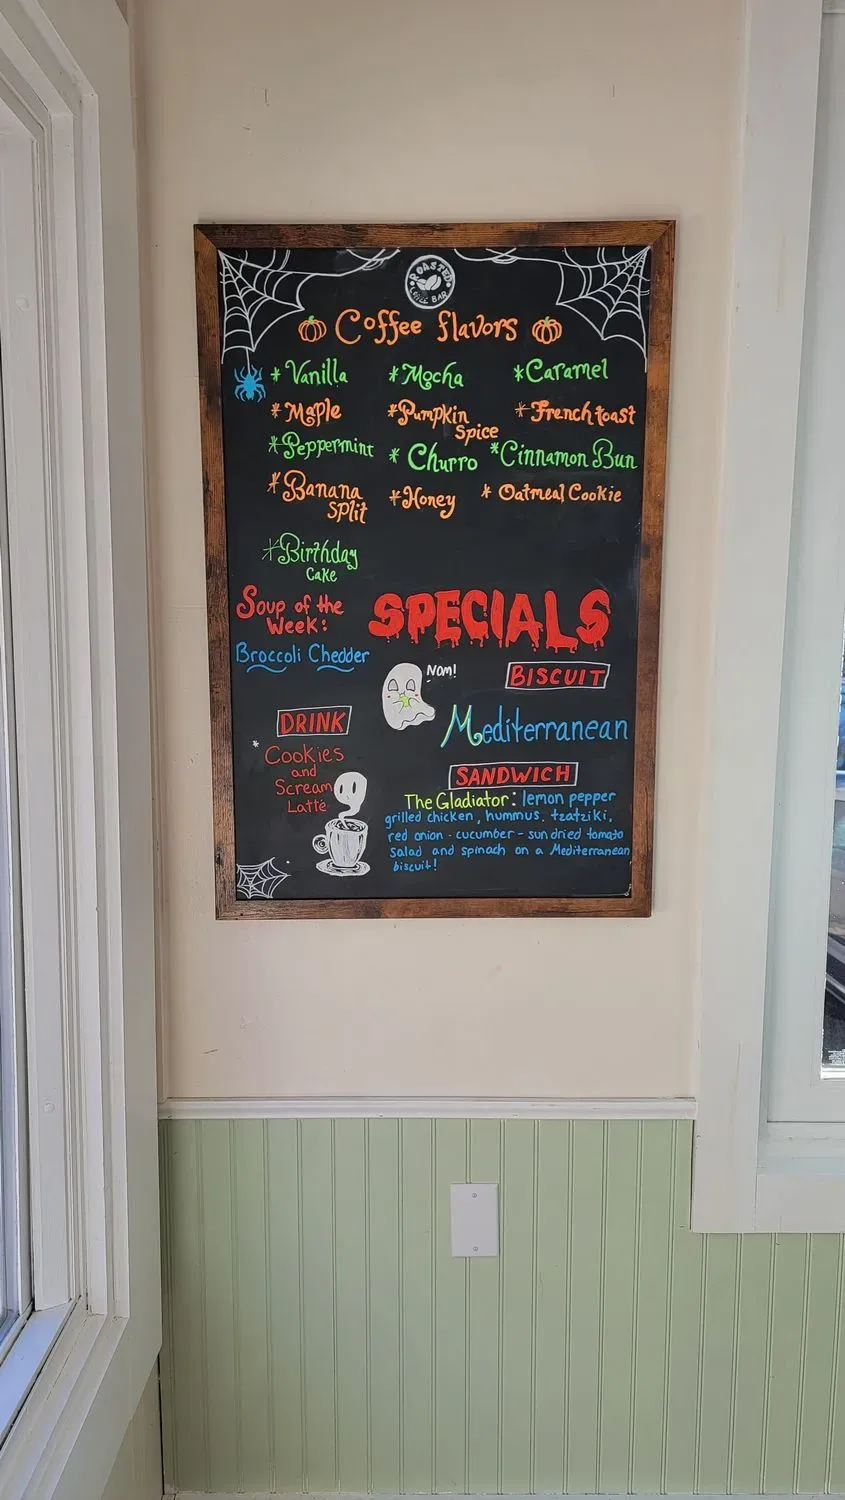 ROASTED
COFFEE BAR
Coffee flavors
* Vanilla * Mocha * Caramel
* Maple * Pumpkin Spice * French toast
* Peppermint * Churro * Cinnamon Bun
* Banana Split * Honey * Oatmeal Cookie
* Birthday Cake
Soup of the
Week:
Broccoli Chedder
SPECIALS
Nom!
BISCUIT
Mediterranean
DRINK
* Cookies
and
Scream
Latte
SANDWICH
The Gladiator: lemon pepper
grilled chicken, hummus, tzatziki,
red onion - cucumber - sun dried tomato
salad and spinach on a Mediterranean
biscuit!